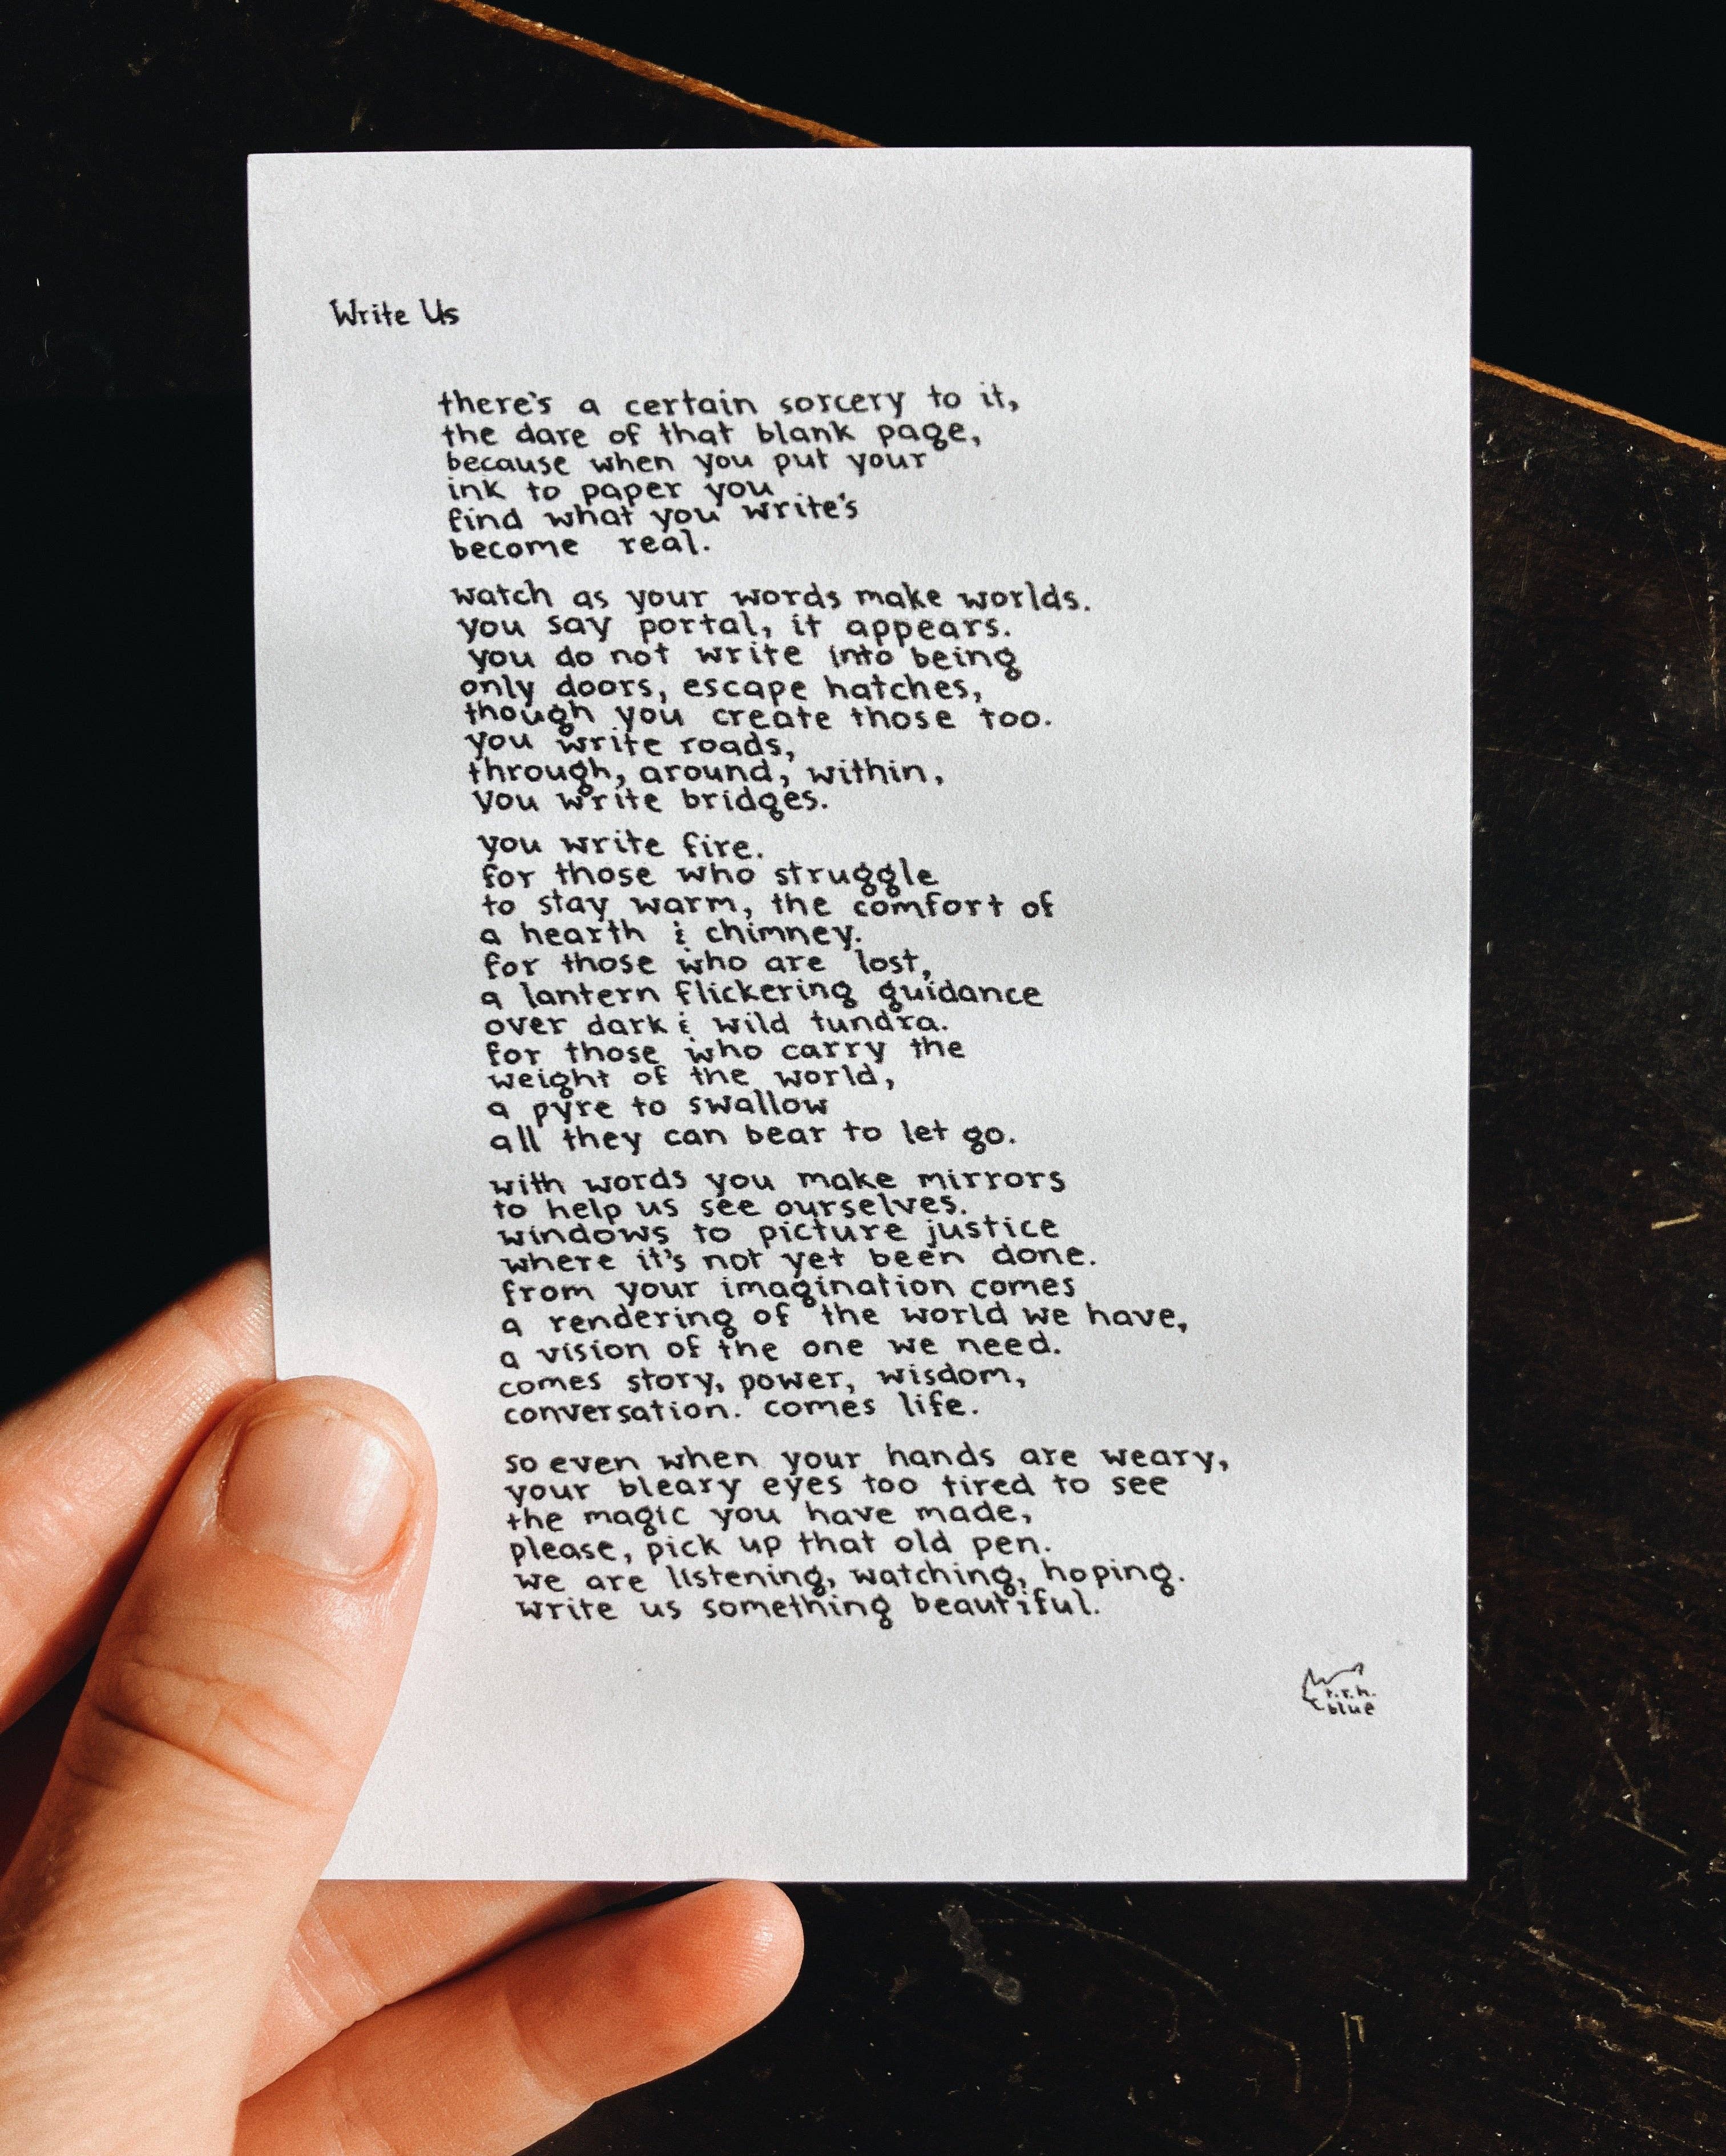 Write Us
there's a certain sorcery to it,
the dare of that blank page,
because when you put your
ink to paper you
find what you write's
become real.
watch as your words make worlds.
you say portal, it appears.
you do not write into being
only doors, escape hatches,
though you create those too.
you write roads,
through, around, within,
you write bridges.
you write fire.
for those who struggle
to stay warm, the comfort of
a hearth & chimney.
for those who are lost,
a lantern flickering guidance
over dark & wild tundra.
for those who carry the
weight of the world,
a pyre to swallow
all they can bear to let go.
with words you make mirrors
to help us see ourselves.
windows to picture justice
where it's not yet been done.
from your imagination comes
a rendering of the world we have,
a vision of the one we need.
comes story, power, wisdom,
conversation. comes life.
so even when your hands are weary,
your bleary eyes too tired to see
the magic you have made,
please, pick up that old pen.
we are listening, watching, hoping.
write us something beautiful.
t.r.h.
blue